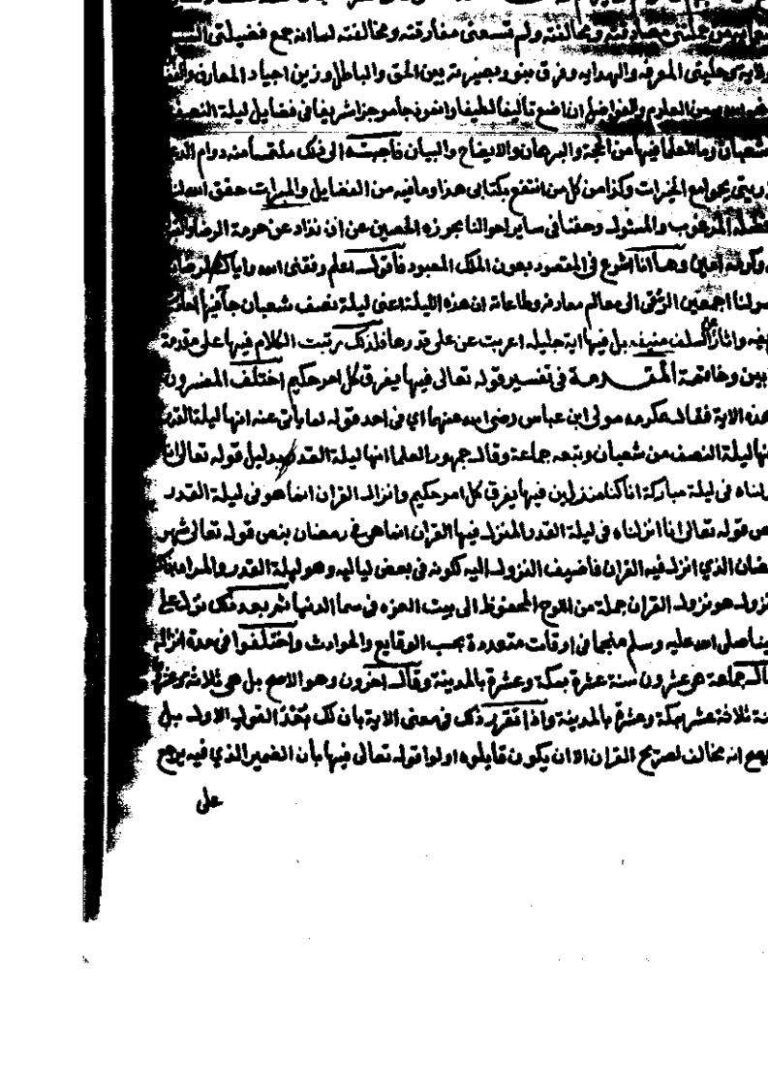 من جملتى مصادقته ومخالفته ولم تسعنى مفارقته ومخالفته لما انه جمع فضيلتى
ولاية وحليتى المعرفه والهدايه وفرق بنور بصيرته بين الحق والباطل وزين اجياد المعارف
من العلوم والفواضل ان اضع تأليفا لطيفا وانموذجا موجزا شريفا فى فضايل ليلة النصف
شعبان وما للعلما فيها من الحجة والبرهان والايضاح والبيان فاجبته الى ذلك ملتمسا منه دوام
يتى بجوامع الخيرات وكذا من كل من انتفع بكتابى هذا وما فيه من الفضايل والمبرات حقق الله
فضله المرغوب والمسئول وحفنا فى ساير احوالنا بحرزه الحصين عن ان نذاد عن حومة الرضا
وكرمه امين وها انا اشرع فى المقصود بعون الملك المعبود فاقول اعلم وفقنى الله واياك لمرضاته
اجمعين الرقى الى معالم معارفه وطاعاته ان هذه الليلة اعنى ليلة نصف شعبان جا فيها
واثار عن السلف منيفه بل فيها اية جليله اعربت عن على قدرها فلذلك رتبت الكلام فيها على مقدمة
بين وخاتمة المقدمة فى تفسير قوله تعالى فيها يفرق كل امر حكيم اختلف المفسرون
هذه الاية فقال عكرمه مولى ابن عباس رضى الله عنهما اى فى احد قوله لما ياتى عنه انها ليلة القدر
نها ليلة النصف من شعبان وتبعه جماعة وقال جمهور العلما انها ليلة القدر بدليل قوله تعالى انا
زلناه فى ليلة مباركة انا كنا منذرين فيها يفرق كل امر حكيم وانزال القران انما هو فى ليلة القدر
ص قوله تعالى انا انزلناه فى ليلة القدر المنزل فيها القران انما هى فى رمضان بنص قوله تعالى شهر
ضان الذي انزل فيه القران فاضيف النزول اليه لكونه فى بعض لياليه وهو ليلة القدر والمراد
نزول هو نزول القران جملة من اللوح المحفوظ الى بيت العزه فى سما الدنيا ثم بعد ذلك نزل على
بينا صلى الله عليه وسلم منجما فى اوقات متعددة بحسب الوقايع والحوادث واختلفوا فى مدة انزاله
قال جماعة هو عشرون سنة عشرة بمكة وعشرة بالمدينة وقال اخرون وهو الاصح بل هى ثلاثة وعشر
نة ثلاثة عشر بمكة وعشرة بالمدينة واذا تقرر ذلك فى معنى الاية بان لك بعد القول الاول بل
انه مخالف لصريح القران الا ان يكون قايلوه اولوا قوله تعالى فيها بان الضمير الذي فيه يرجع
على